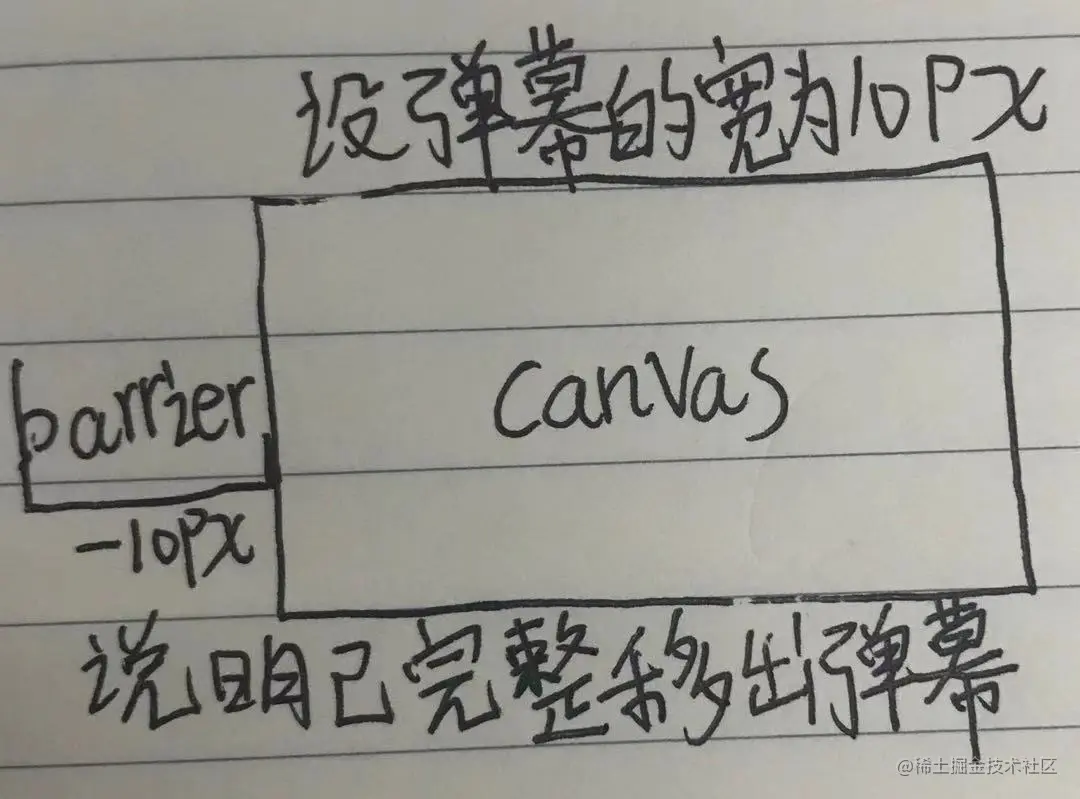 设弹幕的宽为10Px
barrier
canvas
-10Px
说明已完整移出弹幕
@稀土掘金技术社区